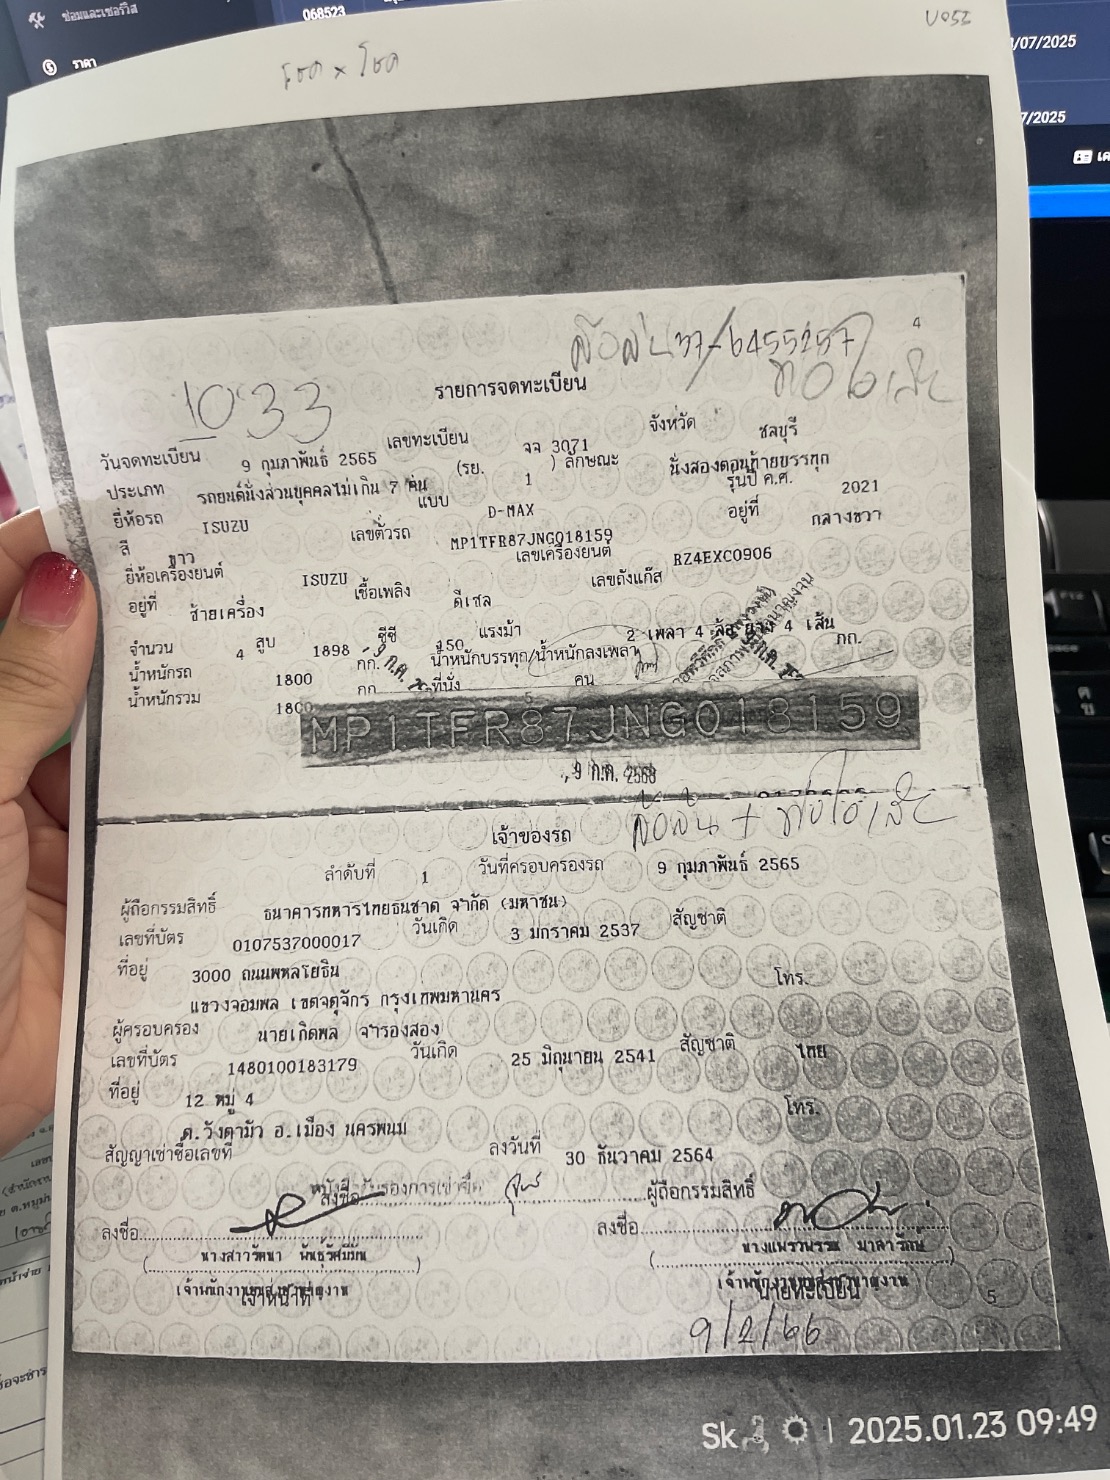 ซ่อมและเซอร์วิส
068523
ราคา
/07/2025
7/2025
U055
โชค x โชค
4
ล้อล้น
รายการจดทะเบียน
1033
วันจดทะเบียน 9 กุมภาพันธ์ 2565 เลขทะเบียน จจ 3071 จังหวัด ชลบุรี
ประเภท รถยนต์นั่งส่วนบุคคลไม่เกิน 7 คน (รย. 1 ) ลักษณะ นั่งสองตอนท้ายบรรทุก
ยี่ห้อรถ ISUZU แบบ D-MAX รุ่นปี ค.ศ. 2021
สี ขาว เลขตัวรถ MP1TFR87JNG018159 อยู่ที่ กลางขวา
ยี่ห้อเครื่องยนต์ ISUZU เลขเครื่องยนต์ RZ4EXC0906
อยู่ที่ ซ้ายเครื่อง เชื้อเพลิง ดีเซล เลขถังแก๊ส
จำนวน 4 สูบ 1898 ซีซี 150 แรงม้า 2 เพลา 4 ล้อ ยาง 4 เส้น
น้ำหนักรถ 1800 กก. น้ำหนักบรรทุก/น้ำหนักลงเพลา กก.
น้ำหนักรวม 1800 กก ที่นั่ง 5 คน
MP1TFR87JNG018159
9 ก.ค. 2568
ล้อล้น +
เจ้าของรถ
ลำดับที่ 1 วันที่ครอบครองรถ 9 กุมภาพันธ์ 2565
ผู้ถือกรรมสิทธิ์ ธนาคารทหารไทยธนชาต จำกัด (มหาชน)
เลขที่บัตร 0107537000017 วันเกิด 3 มกราคม 2537 สัญชาติ
ที่อยู่ 3000 ถนนพหลโยธิน โทร.
แขวงจอมพล เขตจตุจักร กรุงเทพมหานคร
ผู้ครอบครอง นายเกิดพล จำรองสอง
เลขที่บัตร 1480100183179 วันเกิด 25 มิถุนายน 2541 สัญชาติ ไทย
ที่อยู่ 12 หมู่ 4 โทร.
ต.วังตามัว อ.เมือง นครพนม
สัญญาเช่าซื้อเลขที่ ลงวันที่ 30 ธันวาคม 2564
หนังสือรับรองการเช่าซื้อ
ลงชื่อ ผู้ถือกรรมสิทธิ์
ลงชื่อ ลงชื่อ
เจ้าหน้าที่ นายทะเบียน
5
9/2/66
2025.01.23 09:49